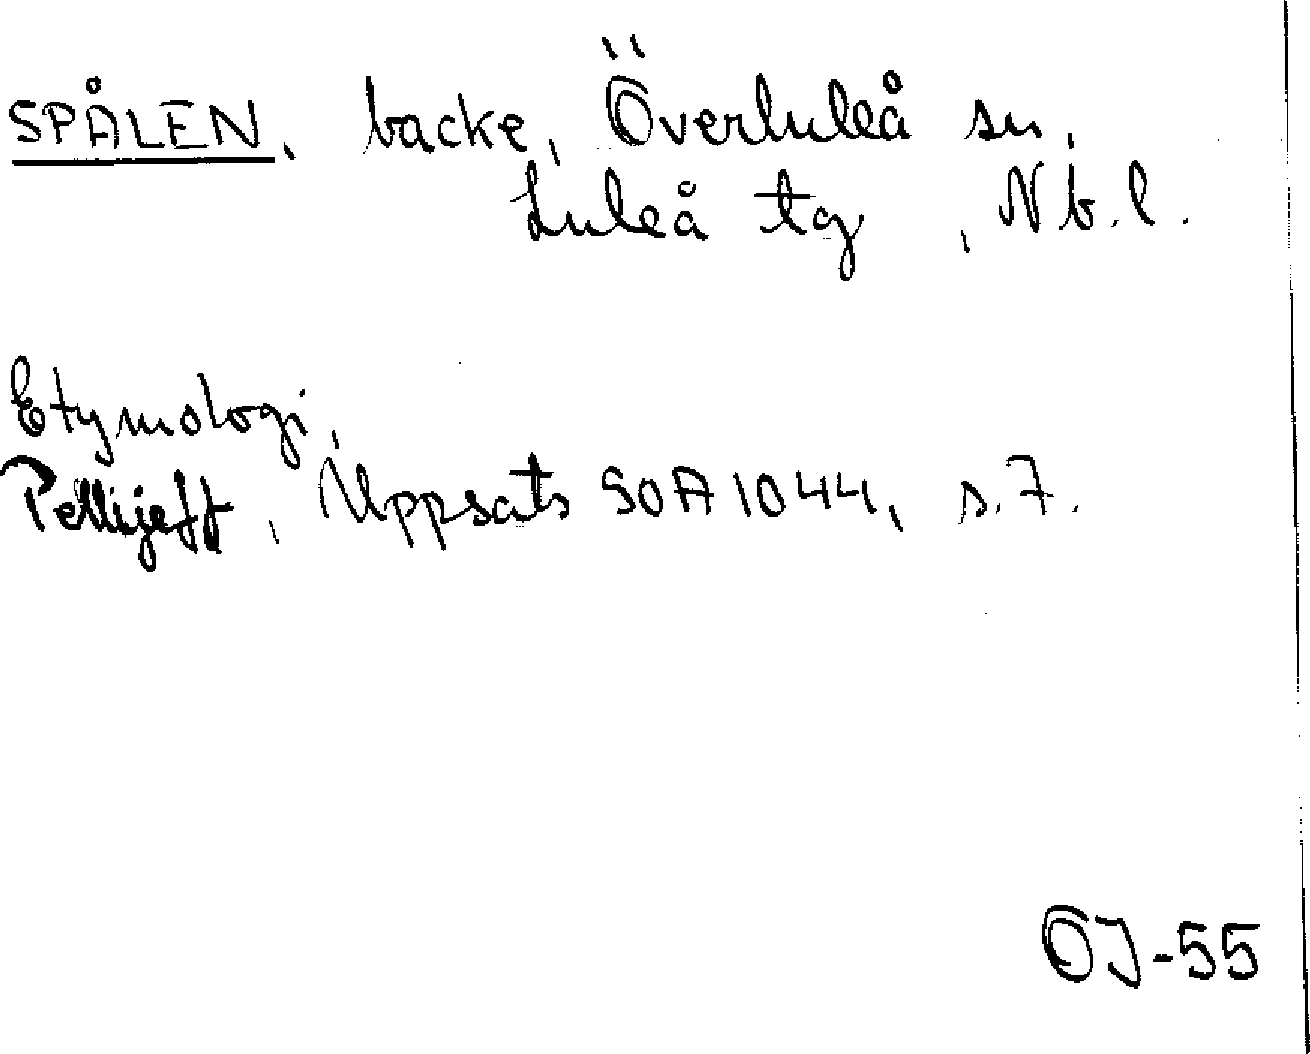 SPÅLEN, backe, Överluleå sn,
Luleå tg, Nb. l.
Etymologi,
Pellijeff, Uppsats SOA 1044, s. 7.
OJ-55